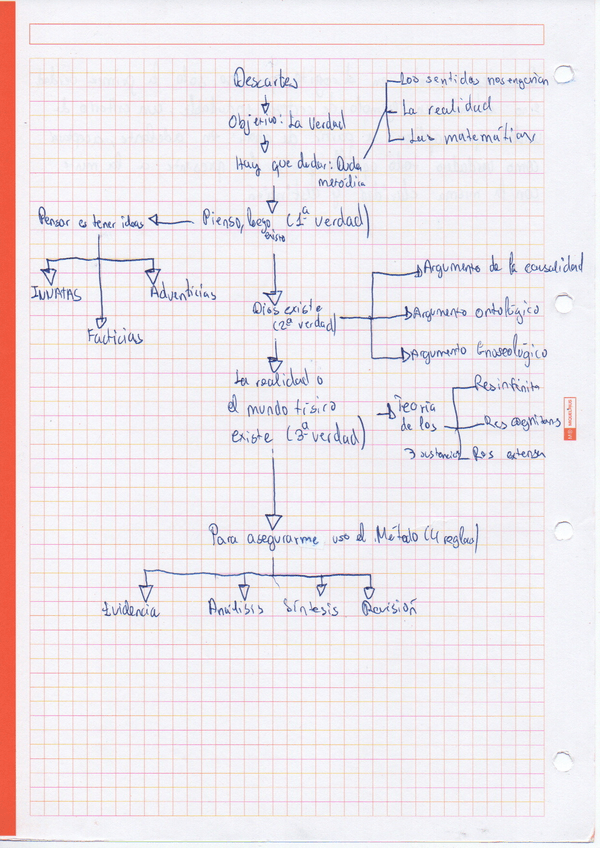 Descartes
Objetivo: La Verdad
Hay que dudar: Duda
metódica
Los sentidos nos engañan
La realidad
Las matemáticas
Pienso, luego (1ª verdad)
existo
Pensar es tener ideas
INNATAS
Adventicias
Facticias
Dios existe
(2ª verdad)
Argumento de la causalidad
Argumento ontológico
Argumento Gnoseológico
La realidad o
el mundo físico
existe (3ª verdad)
Teoría
de los
3 sustancias
Res infinita
Res cognitans
Res extensa
Para asegurarme uso el Método (4 reglas)
Evidencia
Análisis
Síntesis
Revisión